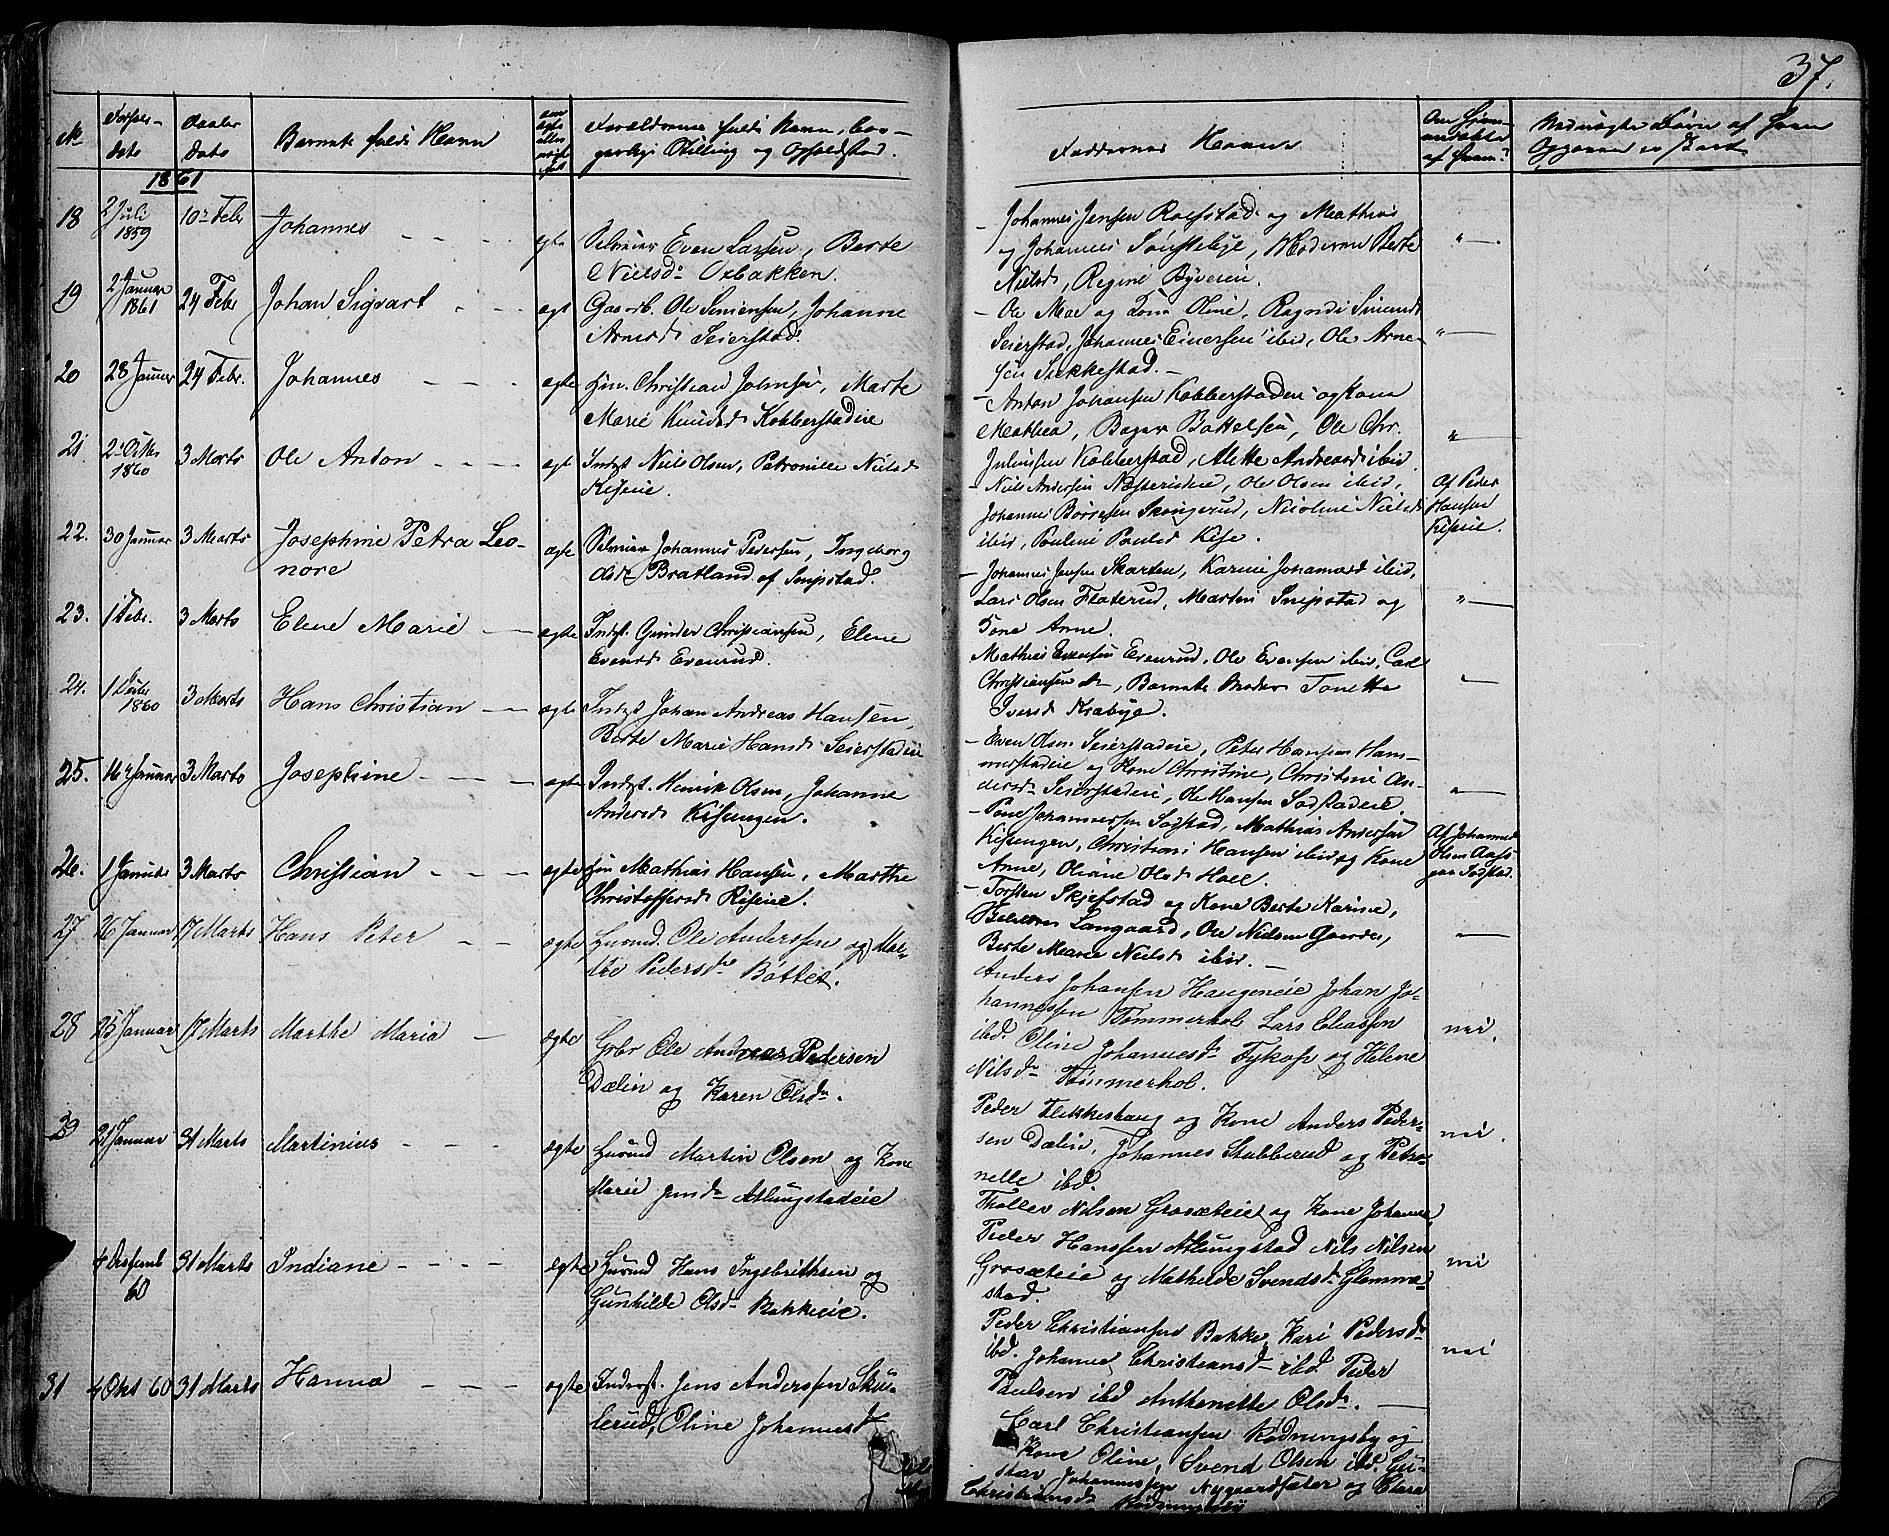 37.
No
Fødsels-
dato
Daabs
Dato
Barnets fulde Navn
om
ægte
eller
uægte
født
Forældrenes fulde Navn, bor-
gerlige Stilling og Opholdssted.
Faddernes Navne
Om Hjemme-
døbt
af hvem?
1861
18
2 Juli
1859
10de Febr
Johannes
ægte
Selveier Even Larsen, Berte
Nielsdr Oxbakken.
Johannes Jensen Roefstad og Mathias
og Johannes Sønsteby, Moderen Berte
Nielsd, Regine Byvereie.
19
2 Januar
1861
24 Febr
Johan Sigvart
ægt
Gaardb. Ole Simensen, Johanne
Arnesd Seierstad.
Ole Moe og Kone Oline, Ragndi Simensd
Seierstad, Johannes Einersen ibid, Ole Arne-
sen Sukkestad.
20
28 Januar
24 Febr.
Johannes
ægte
Hm. Christian Johnsen, Marte
Marie Knudsd Kobberstadeie
Anton Johansen Kobberstadeie og Kone
Mathea, Ole Chr.
Juliussen Kobberstad, Alette Andreasd ibid.
21
2 Octbr
1860
3 Marts
Ole Anton
ægt
Indst Niels Olsen, Petronille Nielsd
Kiseie.
Niels Andersen Næsterudeie, Ole Olsen ibid,
Johannes Børresen Skougerud, Nicoline Nielsd
ibid, Pauline Paulsd Kise.
Af Peder
Hansen
Kiseie.
22.
30 Januar
3 Marts
Josephine Petra Leo-
nore
ægte
Selveier Johannes Pedersen, Ingeborg
Olsdr Bratland af Snipstad.
Johannes Jensen Skarten, Karine Johannesd ibid,
Lars Olsen Flaterud, Martin Snipstad og
Kone Anne.
23.
1 Febr.
3 Marts
Elene Marie
ægte
Indst. Gunder Christiansen, Elene
Evensd Evenrud.
Mathias Evensen Evenrud, Ole Evensen ibid, Carl
Christiansen do, Barnets Moder Tonette
Iversd Kraby.
24.
1 Debr
1860
3 Marts
Hans Christian
ægte
Indst Johan Andreas Hansen,
Berte Marie Hansd Seierstadeie
Even Olsen Seierstadeie, Peter Hansen Ham-
merstadeie og Kone Christine, Christine An-
dersd Seierstadeie, Ole Hansen Sodstadeie.
25.
16 Januar
3 Marts
Josephine
ægte
Indst. Henrik Olsen, Johanne
Andersd Kisengen.
Johannessen Sogstad, Mathias Andersen
Kisengen, Christian Hansen ibid og Kone
Anne, Oliane Olsd Hoel.
Af Johannes
Olsen
26.
1 Januar
3 Marts
Christian
ægte
Hm Mathias Hansen, Marthe
Christoffersd Kiseie.
Torsten Skjefstad og Kone Berte Karine,
Langaard, Ole Nielsen Gaarder,
Berte Marie Nielsd ibid.
27
26 Januar
17 Marts
Hans Peter
ægte
Husmd. Ole Anderssen og Mar-
the Pedersdr Bøttet.
Anders Johansen Haugeneie Johan Jo-
hannessen Tømmerhol Lars Eliassen
ibd. Oline Johannesdr Tykop og Helene
Nilsdr Tømmerhol.
28
25 Januar
17 Marts
Marthe Maria
ægte
Gbr Ole Andreas Pedersen
Dælin og Karen Olsdr.
Peder Flikkeshaug og Kone Anders Peder-
sen Dælin, Johannes Stubberud og Petro-
nelle ibd.
nei.
29
21 Januar
31 Marts
Martinius
ægte
Husmd Martin Olsen og Kone
Marie Jensdr Atlungstadeie
Tholler Nilsen Grosæteie og Kone Johanne,
Peder Hanssen Atlungstad Nils Nilsen
Grosæteie og Mathilde Svendsdr Glemme-
stad.
nei.
4 Desemb
60
31 Marts
Indiane
ægte
Husmd Hans Ingebrithsen og
Gunhilde Olsdr Bakkeeie.
Peder Christiansen Bakke, Kari Pedersdr
ibd. Johanne Christiansd ibd Peder
Paulsen ibd Anthonette Olsdr.
nei
31
4 Okt 60
31 Marts
Hanna
ægte
Inderst. Jens Anderssen Sku-
lerud, Oline Johannesd
Carl Christiansen Rødningsby og
Kone Oline, Svend Olsen ibd. Gu-
stav Johannessen Nygaardsæter og Clara
Christiansdr Rødningsby
nei